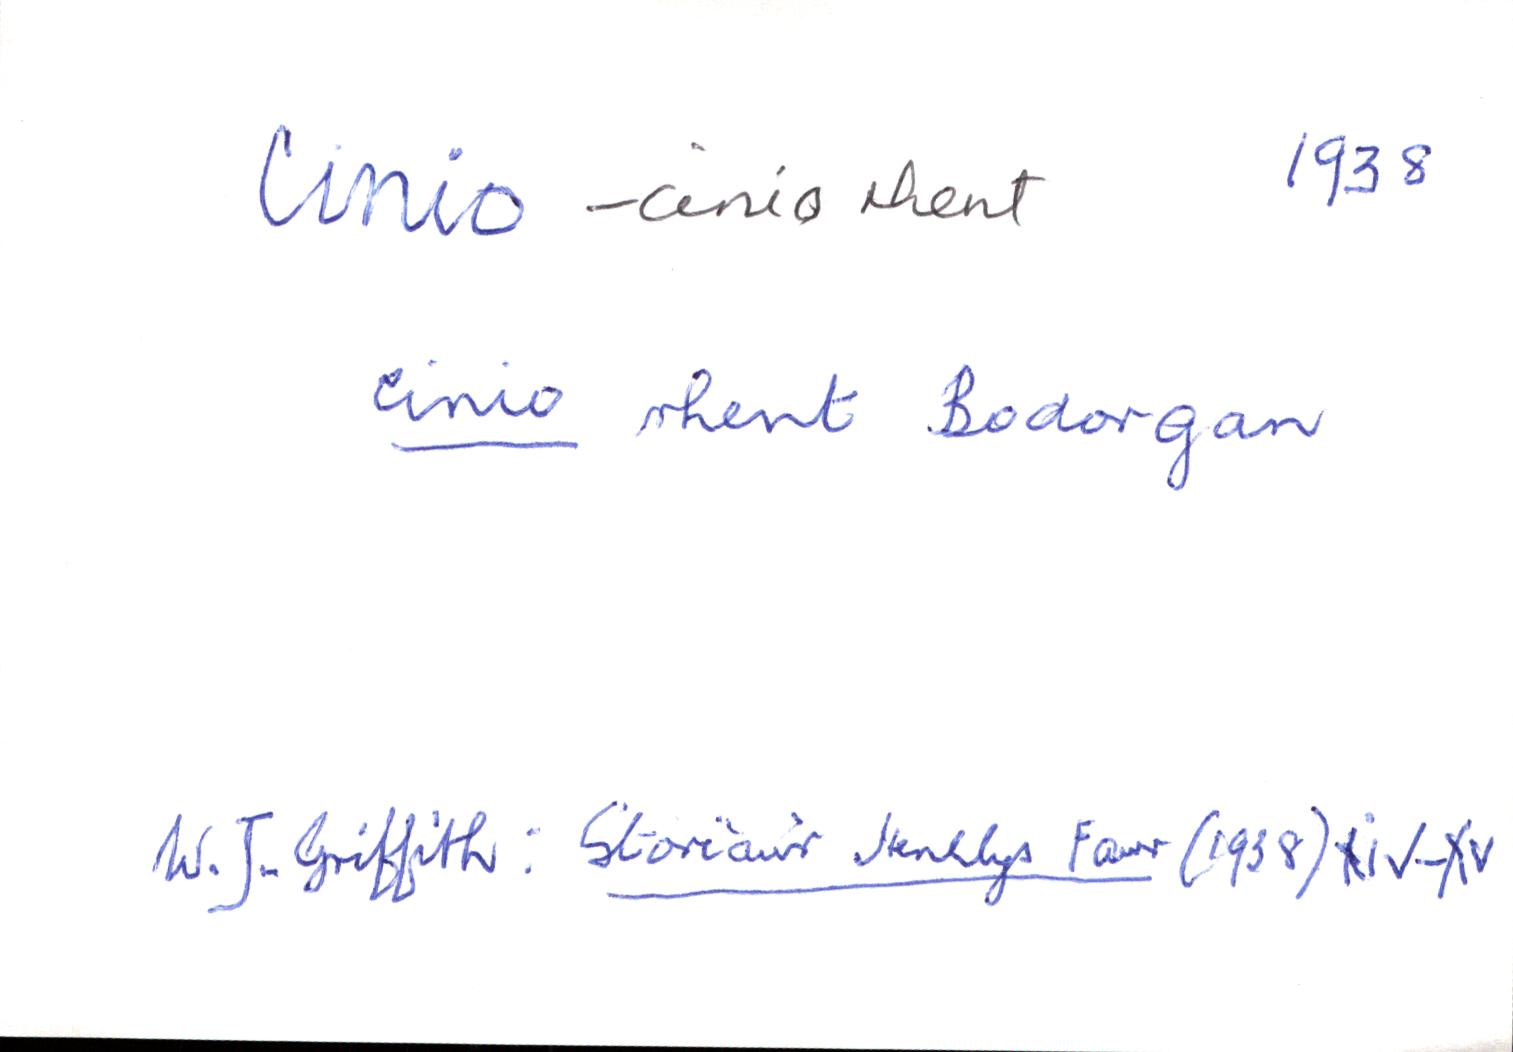 Cinio - cinio rhent 1938
cinio rhent Bodorgan
W. J. Griffith: Storïau'r Henllys Fawr (1938) xiv-xv